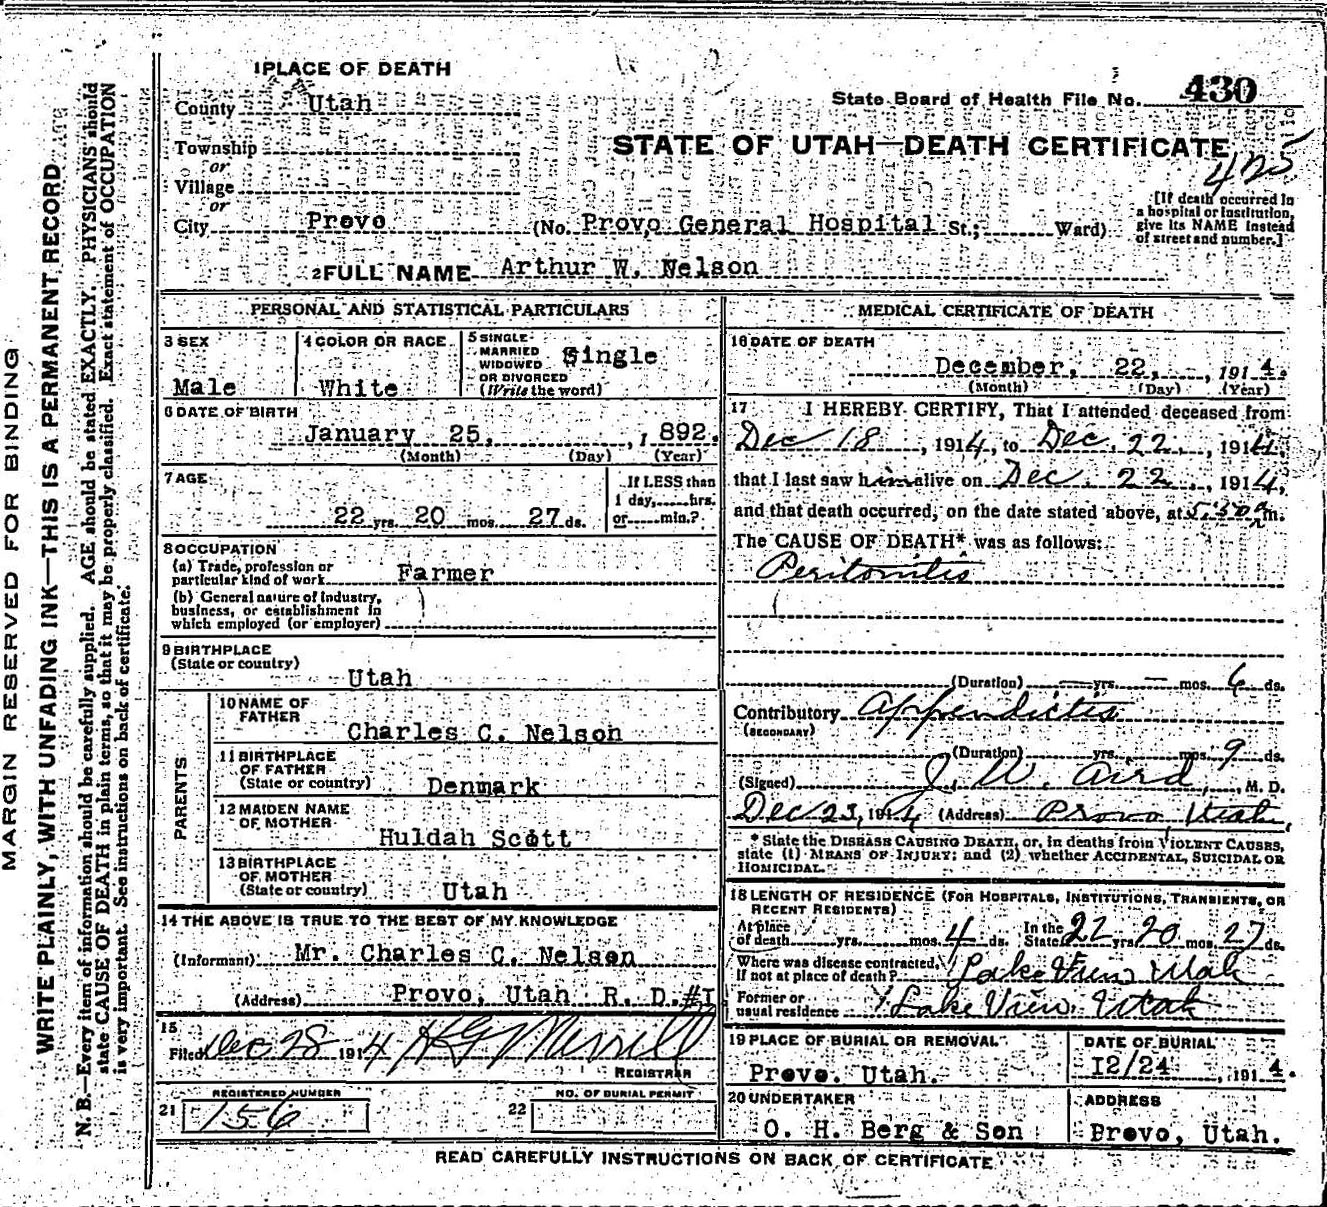 MARGIN RESERVED FOR BINDING
WRITE PLAINLY, WITH UNFADING INK—THIS IS A PERMANENT RECORD
N. B.—Every item of information should be carefully supplied. AGE should be stated EXACTLY. PHYSICIANS should
state CAUSE OF DEATH in plain terms, so that it may be properly classified. Exact statement of OCCUPATION
is very important. See instructions on back of certificate.
1 PLACE OF DEATH
County Utah
State Board of Health File No. 430
Township
or
STATE OF UTAH—DEATH CERTIFICATE
425
Village
or
City Provo (No. Provo General Hospital St.; Ward)
[If death occurred in
a hospital or institution,
give its NAME instead
of street and number.]
2 FULL NAME Arthur W. Nelson
PERSONAL AND STATISTICAL PARTICULARS
3 SEX
Male
4 COLOR OR RACE
White
5 SINGLE
MARRIED
WIDOWED
OR DIVORCED
(Write the word)
Single
6 DATE OF BIRTH
January 25, , 1 892.
(Month) (Day) (Year)
7 AGE
22 yrs. 20 mos. 27 ds.
If LESS than
1 day, hrs.
or min.?
8 OCCUPATION
(a) Trade, profession or
particular kind of work Farmer
(b) General nature of industry,
business, or establishment in
which employed (or employer)
9 BIRTHPLACE
(State or country)
Utah
PARENTS
10 NAME OF
FATHER
Charles C. Nelson
11 BIRTHPLACE
OF FATHER
(State or country) Denmark
12 MAIDEN NAME
OF MOTHER
Huldah Scott
13 BIRTHPLACE
OF MOTHER
(State or country) Utah
14 THE ABOVE IS TRUE TO THE BEST OF MY KNOWLEDGE
(Informant) Mr. Charles C. Nelson
(Address) Provo, Utah R. D. #I
15
Filed Dec 28 1914 H G Merrill
REGISTRAR
REGISTERED NUMBER
21 156
NO. OF BURIAL PERMIT
22
MEDICAL CERTIFICATE OF DEATH
16 DATE OF DEATH
December, 22, , 191 4.
(Month) (Day) (Year)
17 I HEREBY CERTIFY, That I attended deceased from
Dec 18 , 1914, to Dec. 22, , 1914,
that I last saw him alive on Dec. 22 , 1914,
and that death occurred, on the date stated above, at 5:30 a m.
The CAUSE OF DEATH* was as follows:
Peritonitis
(Duration) — yrs. — mos. 6 ds.
Contributory Appendictis
(SECONDARY)
(Duration) yrs. mos. 9 ds.
(Signed) J. W. Aird, M. D.
Dec 23, 1914 (Address) Provo, Utah,
* State the DISEASE CAUSING DEATH, or, in deaths from VIOLENT CAUSES,
state (1) MEANS OF INJURY; and (2) whether ACCIDENTAL, SUICIDAL OR
HOMICIDAL.
18 LENGTH OF RESIDENCE (FOR HOSPITALS, INSTITUTIONS, TRANSIENTS, OR
RECENT RESIDENTS)
At place
of death yrs. mos. 4 ds.
In the
State 22 yrs 20 mos. 27 ds.
Where was disease contracted,
If not at place of death? Lake View Utah
Former or
usual residence Lake View, Utah
19 PLACE OF BURIAL OR REMOVAL
Provo. Utah.
DATE OF BURIAL
I2/24 , 191 4.
20 UNDERTAKER
O. H. Berg & Son
ADDRESS
Provo, Utah.
READ CAREFULLY INSTRUCTIONS ON BACK OF CERTIFICATE